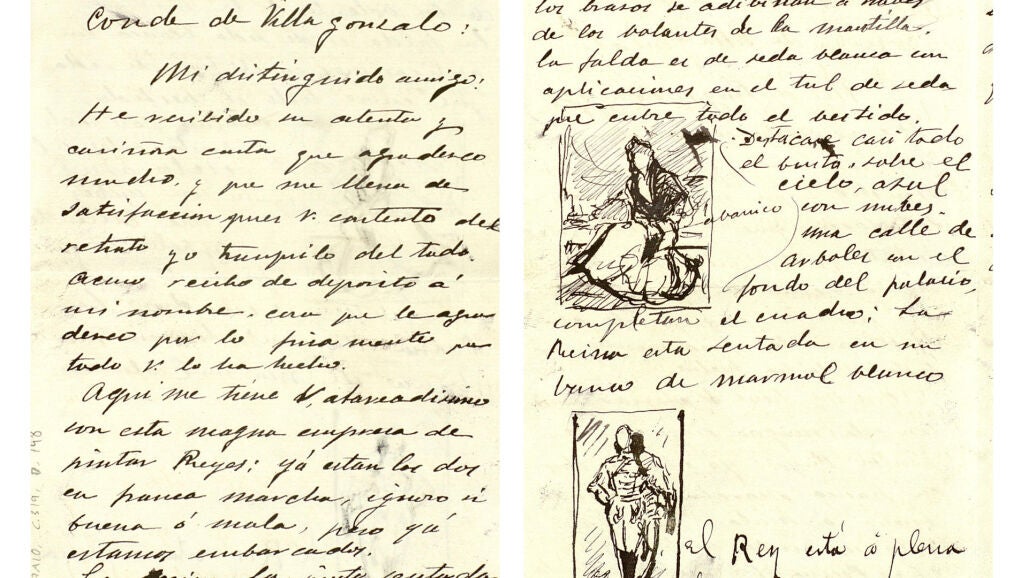 Conde de Villagonzalo:
Mi distinguido amigo:
He recibido su atenta y
cariñosa carta que agradesco
mucho, y que me llena de
satisfaccion pues V. contento del
retrato yo tranquilo del todo.
Acuso recibo de deposito á
mi nombre, cosa que le agra
desco por lo finamente que
todo V. lo ha hecho.
Aqui me tiene V, atareadisimo
con esta magna empresa de
pintar Reyes; yá estan los dos
en franca marcha, ignoro si
buena ó mala, pero yá
estamos embarcados.
La sentada
los brasos se adivinan a traves
de los volantes de la mantilla,
la falda es de seda blanca con
aplicaciones en el tul de seda
que cubre todo el vestido.
Destacase casi todo
el busto sobre el
cielo, asul
abanico
con nubes.
una calle de
arboles con el
fondo del palacio,
completan el cuadro; La
Reina esta sentada en un
banco de marmol blanco
el Rey está á plena